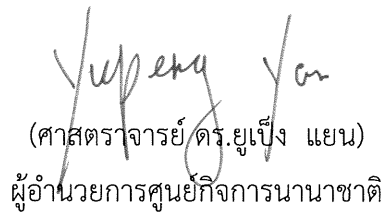 Yupeng Yan
(ศาสตราจารย์ ดร.ยูเป็ง แยน)
ผู้อำนวยการศูนย์กิจการนานาชาติ